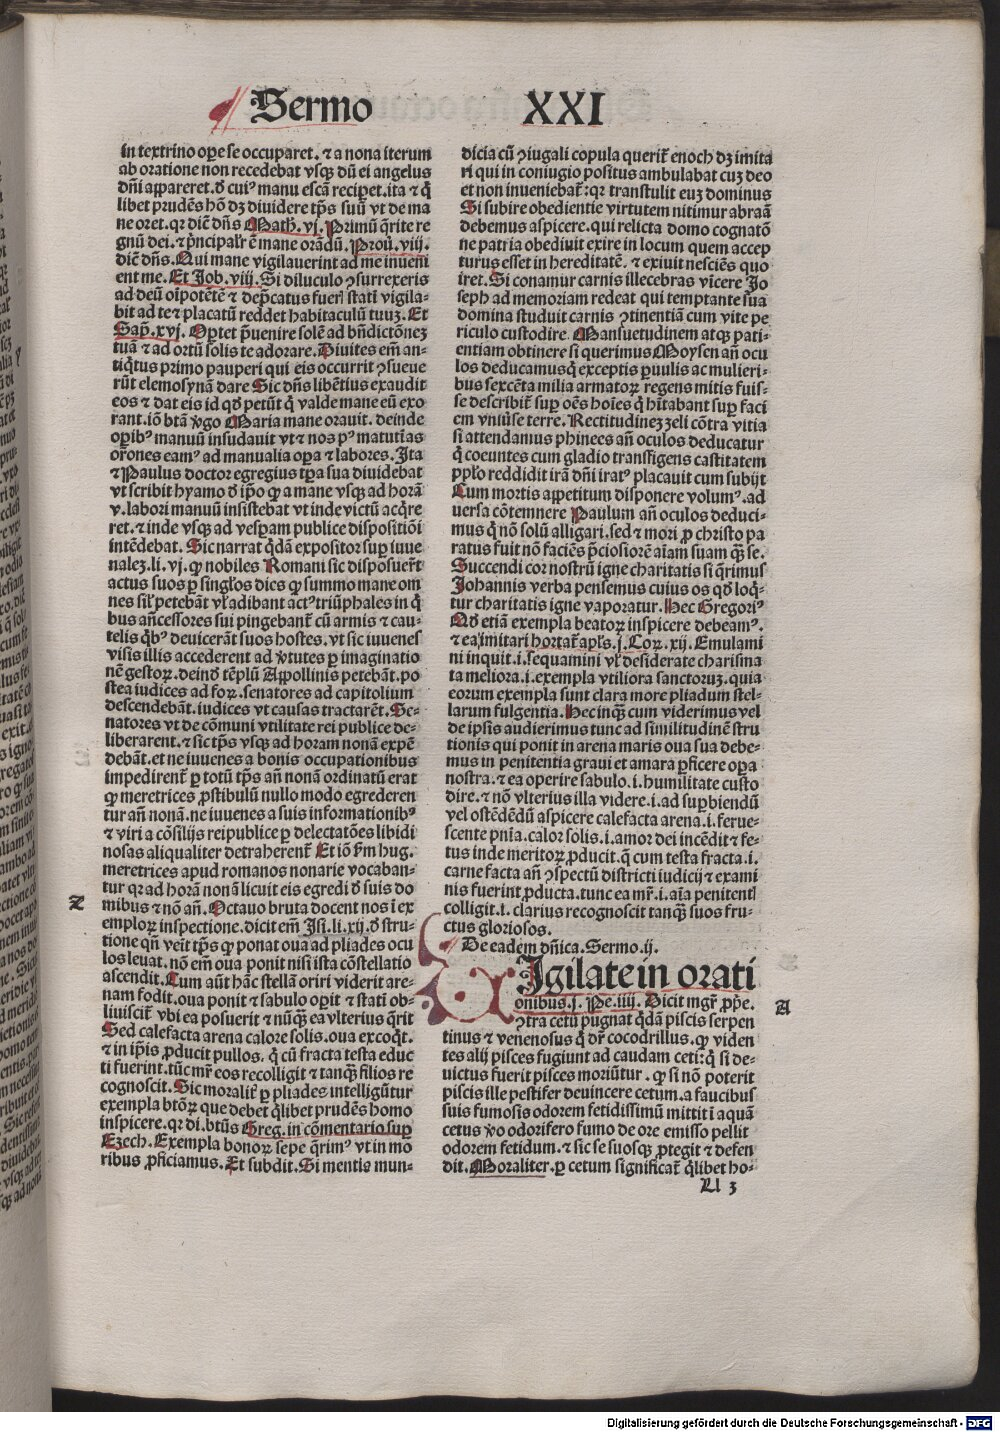 Sermo XXI
in textrino oꝑe se occuparet. ⁊ a nona iterum
ab oratione non recedebat vsqꝫ dū ei angelus
dn̄i appareret. ð cuiꝰ manu escā reciꝑet. ita ⁊ q̄
libet prudēs hō dꝫ diuidere tp̄s suū vt de ma
ne oret. qꝛ dic̄ dn̄s Math. vj. Primū q̄rite re
gnū dei. ⁊ p̄ncipalr̄ ē mane orādū. Prou. viij.
dic̄ dn̄s. Qui mane vigilauerint ad me inueni
ent me. Et Job. viij. Si diluculo ↄsurrexeris
ad deū oīpotētē ⁊ dep̄catus fuerꝭ statī vigila-
bit ad te ⁊ placatū reddet habitaculū tuuꝫ. Et
Sap̄. xvj. Oꝑtet p̄uenire solē ad bn̄dictōneꝫ
tuā ⁊ ad ortū solis te adorare. Diuites em̄ an-
tiq̄tus primo pauperi qui eis occurrit ↄsueue
rūt elemosynā dare Sic dn̄s libētius exaudit
eos ⁊ dat eis id qd̄ petūt q̄ valde mane eū exo
rant. iō btā v̄go Maria mane orauit. deinde
oꝑibꝰ manuū insudauit vt ⁊ nos pꝰ matutīas
or̄ones eamꝰ ad manualia oꝑa ⁊ labores. Ita
⁊ Paulus doctor egregius tꝑa sua diuidebat
vt scribit hyamo ð ip̄o ꝙ a mane vsqꝫ ad horā
v. labori manuū insistebat vt inde victū acq̄re
ret. ⁊ inde vsqꝫ ad vesꝑam publice dispositiōi
intēdebat. Sic narrat q̄dā expositor suꝑ iuue
naleꝫ. li. vj. ꝙ nobiles Romani sic disposuer̄t
actus suos ꝑ singl̄os dies ꝙ summo mane om
nes sil̓ petebāt vl̓ adibant actꝰ triūphales in q̄
bus an̄cessores sui pingebant̄ cū armis ⁊ cau-
telis q̄bꝰ deuicerāt suos hostes. vt sic iuuenes
visis illis accederent ad v̓tutes ꝑ imaginatio
nē gestoꝝ. deinð tēplū Appollinis petebāt. po
stea iudices ad foꝝ. senatores ad capitolium
descendebāt. iudices vt causas tractarēt. Se-
natores vt de cōmuni vtilitate rei publice de-
liberarent. ⁊ sic tp̄s vsqꝫ ad horam nonā expē
debāt. et ne iuuenes a bonis occupationibus
impedirent̄ ꝑ totū tp̄s an̄ nonā ordinatū erat
ꝙ meretrices ꝓstibulū nullo modo egrederen
tur an̄ nonā. ne iuuenes a suis informationibꝰ
⁊ viri a cōsilijs reipublice ꝑ delectatōes libidi
nosas aliqualiter detraherent̄ Et iō s̄m hug.
meretrices apud romanos nonarie vocaban-
tur qꝛ ad horā nonā licuit eis egredi ð suis do
mibus ⁊ nō an̄. Octauo bruta docent nos ī ex
emploꝝ inspectione. dicit em̄ Isi. li. xij. ð stru-
tione qn̄ veīt tp̄s ꝙ ponat oua ad pliades ocu
los leuat. nō em̄ oua ponit nisi ista cōstellatio
ascendit. Cum aūt hāc stellā oriri viderit are-
nam fodit. oua ponit ⁊ sabulo oꝑit ⁊ statī ob-
liuiscit̄ vbi ea posuerit ⁊ nūqꝫ ea vlterius q̄rit
Sed calefacta arena calore solis. oua excoq̄t.
⁊ in ip̄is ꝓducit pullos. q̄ cū fracta testa educ
ti fuerint. tūc mr̄ eos recolligit ⁊ tanqꝫ filios re
cognoscit. Sic moralit̓ ꝑ pliades intelligūtur
exempla btōꝝ que debet q̄libet prudēs homo
inspicere. qꝛ di. btūs Greg. in cōmentario suꝑ
Ezech. Exempla bonoꝝ sepe q̄rimꝰ vt in mo
ribus ꝓficiamus. Et subdit. Si mentis mun-
Z
dicia cū ↄiugali copula querit̄ enoch dꝫ imita
ri qui in coniugio positus ambulabat cuꝫ deo
et non inueniebat̄. qꝛ transtulit euꝫ dominus
Si subire obedientie virtutem nitimur abraā
debemus aspicere. qui relicta domo cognatō
ne patria obediuit exire in locum quem accep
turus esset in hereditatē. ⁊ exiuit nesciēs quo
iret. Si conamur carnis illecebras vicere Jo
seph ad memoriam redeat qui temptante sua
domina studuit carnis ↄtinentiā cum vite pe
riculo custodire. Mansuetudinem atqꝫ pati-
entiam obtinere si querimus Moysen an̄ ocu
los deducamus q̄ exceptis ꝑuulis ac mulieri-
bus sexcēta milia armatoꝝ regens mitis fuis-
se describit̄ suꝑ oēs hoīes q̄ hītabant suꝑ faci
em vniūse terre. Rectitudineꝫ zeli cōtra vitia
si attendamus phinees an̄ oculos deducatur
q̄ coeuntes cum gladio transfigens castitatem
pplo reddidit irā dn̄i iratꝰ placauit cum subijt
Cum mortis appetitum disponere volumꝰ. ad
uersa cōtemnere Paulum an̄ oculos deduci-
mus q̄ nō solū alligari. sed ⁊ mori ꝓ christo pa
ratus fuit nō faciēs p̄ciosiorē aīam suam qꝫ se.
Succendi cor nostrū igne charitatis si q̄rimus
Johannis verba pensemus cuius os qd̄ loq̄-
tur charitatis igne vaporatur. Hec Gregoriꝰ
Ad etiā exempla beatoꝝ inspicere debeamꝰ.
⁊ ea imitari hortat̄ apl̄s. j. Coꝝ. xij. Emulami
ni inquit. i. sequamini vl̓ desiderate charisma
ta meliora. i. exempla vtiliora sanctoruꝫ. quia
eorum exempla sunt clara more pliadum stel-
larum fulgentia. Hec inqꝫ cum viderimus vel
de ipsis audierimus tunc ad similitudinē stru
tionis qui ponit in arena maris oua sua debe-
mus in penitentia graui et amara ꝑficere oꝑa
nostra. ⁊ ea operire sabulo. i. humilitate custo
dire. ⁊ nō vlterius illa videre. i. ad suꝑbiendū
vel ostēdēdū aspicere calefacta arena. i. ferue-
scente pn̄ia. calor solis. i. amor dei incēdit ⁊ fe-
tus inde meritoꝝ ꝓducit. q̄ cum testa fracta. i.
carne facta an̄ ↄspectū districti iudicij ⁊ exami
nis fuerint ꝓducta. tunc ea mr̄. i. aīa penitentꝭ
colligit. i. clarius recognoscit tanqꝫ suos fru-
ctus gloriosos.
De eadem dn̄ica. Sermo. ij.
VIgilate in orati
onibus. j. Pe. iiij. Dicit mgr̄ ꝓp̓e.
ↄtra cetū pugnat q̄dā piscis serpen
tinus ⁊ venenosus q̄ dr̄ cocodrillus. ꝙ viden
tes alij pisces fugiunt ad caudam ceti: q̄ si de-
uictus fuerit pisces moriūtur. ꝙ si nō poterit
piscis ille pestifer deuincere cetum. a faucibus
suis fumosis odorem fetidissimū mittit ī aquā
cetus v̓o odorifero fumo de ore emisso pellit
odorem fetidum. ⁊ sic se suosqꝫ ꝓtegit ⁊ defen
dit. Moraliter. ꝑ cetum significat̄ q̄libet ho-
A
Ll 3
Digitalisierung gefördert durch die Deutsche Forschungsgemeinschaft - DFG